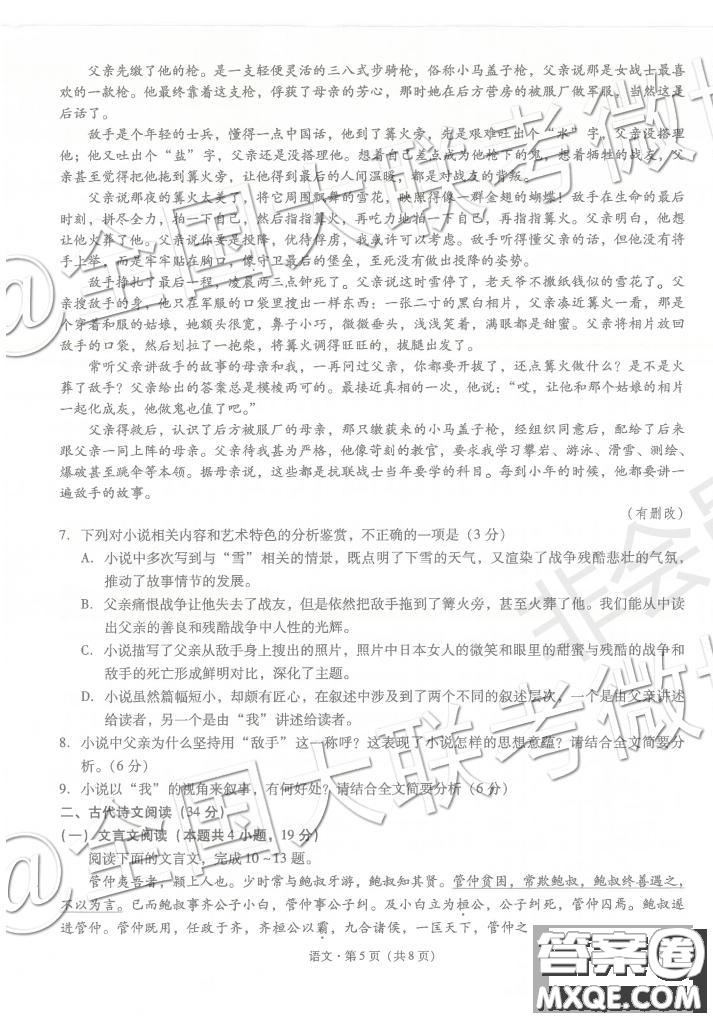 父亲先缴了他的枪。是一支轻便灵活的三八式步骑枪，俗称小马盖子枪，父亲说那是女战士最喜
欢的一款枪。他最终靠着这支枪，俘获了母亲的芳心，那时她在后方营房的被服厂做军服。当然这是
后话了。
敌手是个年轻的士兵，懂得一点中国话，他到了篝火旁，先是艰难吐出个“水”字，父亲没搭理
他；他又吐出个“盐”字，父亲还是没搭理他。想着自己差点成为他枪下的鬼，想着牺牲的战友，父
亲甚至觉得把他拖到篝火旁，让他得到最后的人间温暖，都是对战友的背叛。
父亲说那夜的篝火太美了，将它周围飘舞的雪花，映照得像一群金翅的蝴蝶！敌手在生命的最后
时刻，拼尽全力，拍一下自己，然后指指篝火，再吃力地拍一下自己，再指指篝火。父亲明白，他想
让他火葬了他。父亲说你要是投降，优待俘虏，我或许可以考虑。敌手听得懂父亲的话，但他没有将
手上举，而是牢牢贴在胸口，像守卫最后的堡垒，至死没有做出投降的姿势。
敌手挣扎了最后一程，凌晨两三点钟死了。父亲说这时雪停了，老天爷不撒纸钱似的雪花了。父
亲搜敌手的身，他只在军服的口袋里搜出一样东西：一张二寸的黑白相片，父亲凑近篝火一看，那是
个穿着和服的姑娘，她额头很宽，鼻子小巧，微微垂头，浅浅笑着，满眼都是甜蜜。父亲将相片放回
敌手的口袋，然后划拉了一抱柴，将篝火调得旺旺的，拔腿走了。
常听父亲讲敌手的故事的母亲和我，一再问过父亲，你都要开拔了，还点篝火做什么？是不是火
葬了敌手？父亲给出的答案总是模棱两可的。最接近真相的一次，他说：“哎，让他和那个姑娘的相片
一起化成灰，他做鬼也值了吧。”
父亲得救后，认识了后方被服厂的母亲，那只缴获来的小马盖子枪，经组织同意后，配给了后来
跟父亲一同上阵的母亲。父亲待我甚为严格，他像苛刻的教官，要求我学习攀岩、游泳、滑雪、测绘、
爆破甚至跳伞等本领。据母亲说，这些都是抗联战士当年要学的科目。每到小年的时候，他都要讲一
遍敌手的故事。
（有删改）
7．下列对小说相关内容和艺术特色的分析鉴赏，不正确的一项是（3分）
A．小说中多次写到与“雪”相关的情景，既点明了下雪的天气，又渲染了战争残酷悲壮的气氛，
推动了故事情节的发展。
B．父亲痛恨战争让他失去了战友，但是依然把敌手拖到了篝火旁，甚至火葬了他。我们能从中读
出父亲的善良和残酷战争中人性的光辉。
C．小说描写了父亲从敌手身上搜出的照片，照片中日本女人的微笑和眼里的甜蜜与残酷的战争和
敌手的死亡形成鲜明对比，深化了主题。
D．小说虽然篇幅短小，却颇有匠心，在叙述中涉及到了两个不同的叙述层次，一个是由父亲讲述
给读者，另一个是由“我”讲述给读者。
8．小说中父亲为什么坚持用“敌手”这一称呼？这表现了小说怎样的思想意蕴？请结合全文简要分
析。（6分）
9．小说以“我”的视角来叙事，有何好处？请结合全文简要分析（6分）
二、古代诗文阅读（34分）
（一）文言文阅读（本题共4小题，19分）
阅读下面的文言文，完成10~13题。
管仲夷吾者，颍上人也。少时常与鲍叔牙游，鲍叔知其贤。管仲贫困，常欺鲍叔，鲍叔终善遇之，
不以为言。已而鲍叔事齐公子小白，管仲事公子纠。及小白立为桓公，公子纠死，管仲囚焉。鲍叔遂
进管仲。管仲既用，任政于齐，齐桓公以霸，九合诸侯，一匡天下，管仲之
语文·第5页（共8页）
@全国大联考微博
@全国大联考微博
非会员
答案卷
MXQE.COM